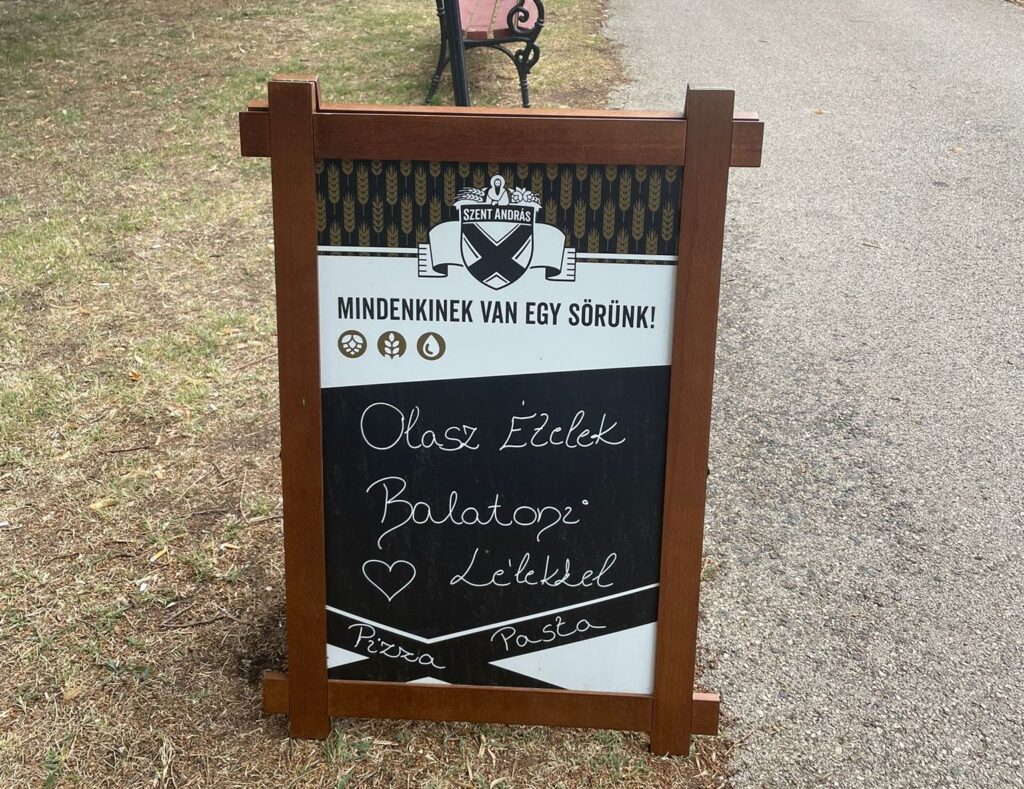 SZENT ANDRÁS
MINDENKINEK VAN EGY SÖRÜNK!
Olasz Ételek
Balatoni
Lélekkel
Pizza Pasta